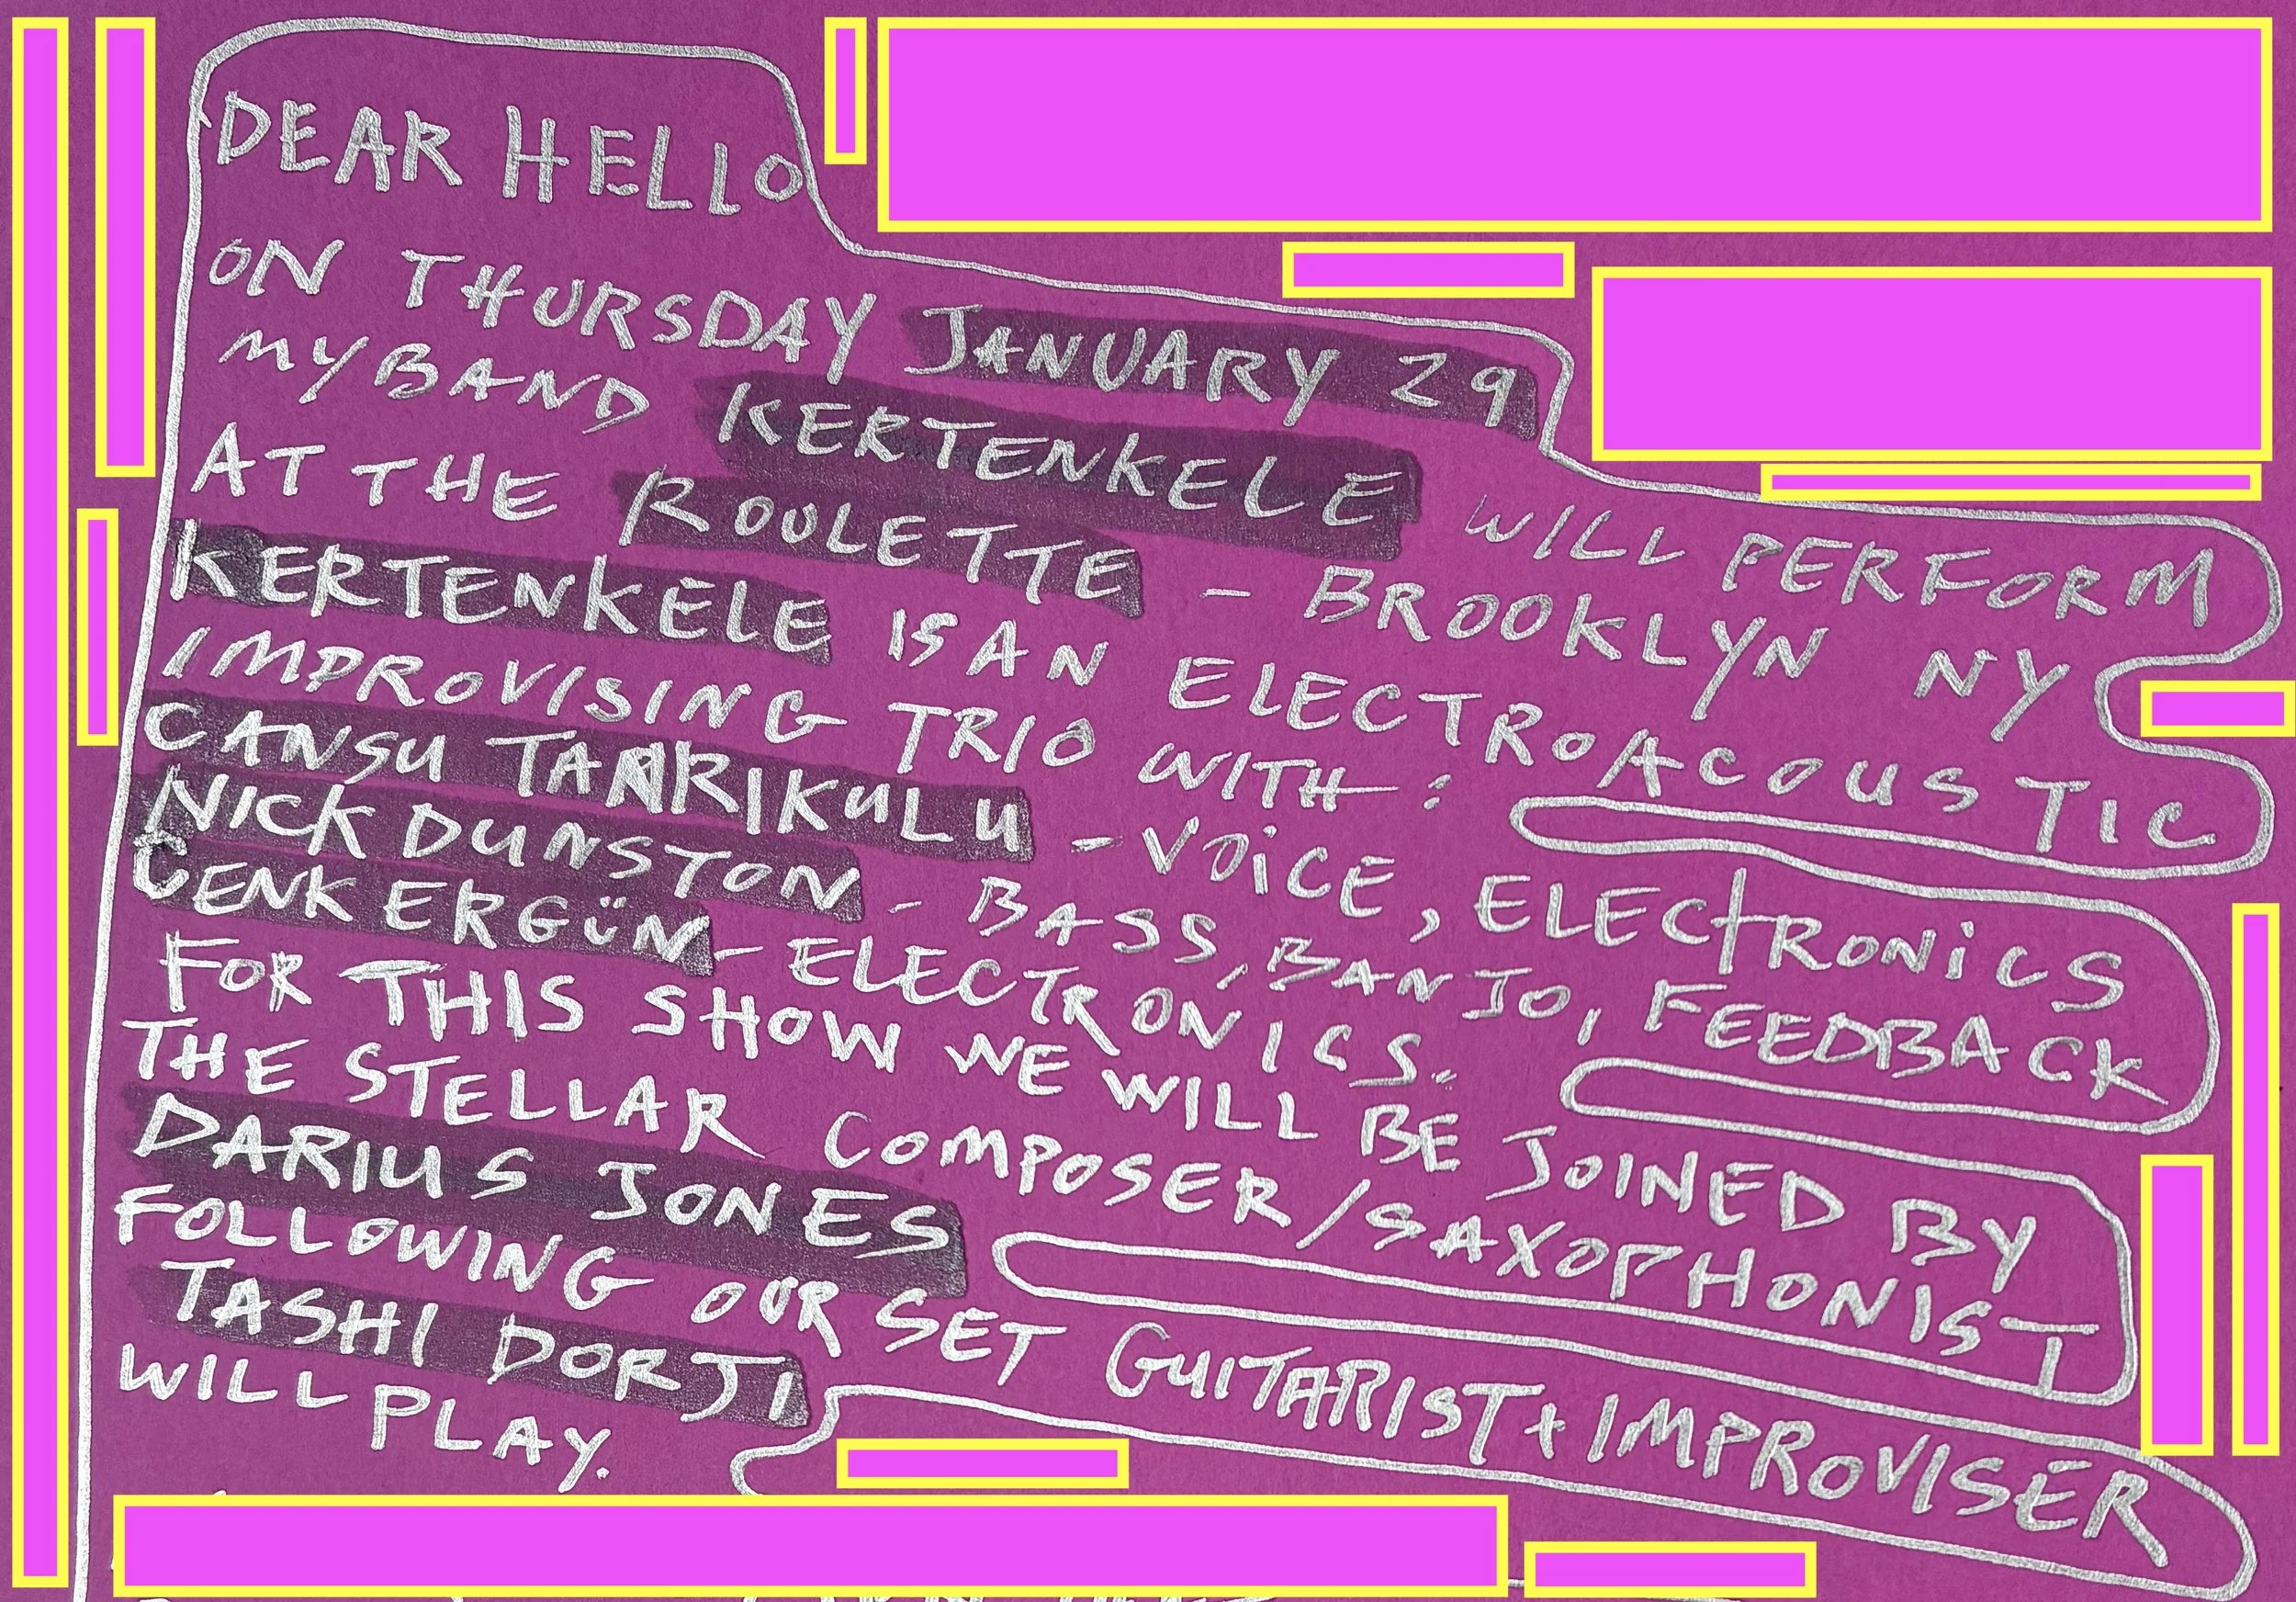 DEAR HELLO
ON THURSDAY JANUARY 29
MY BAND KERTENKELE WILL PERFORM
AT THE ROULETTE - BROOKLYN NY
KERTENKELE IS AN ELECTROACOUSTIC
IMPROVISING TRIO WITH:
CANSU TANRIKULU - VOICE, ELECTRONICS
NICK DUNSTON - BASS, BANJO, FEEDBACK
CENK ERGÜN - ELECTRONICS.
FOR THIS SHOW WE WILL BE JOINED BY
THE STELLAR COMPOSER/SAXOPHONIST
DARIUS JONES
FOLLOWING OUR SET GUITARIST + IMPROVISER
TASHI DORJI
WILL PLAY.